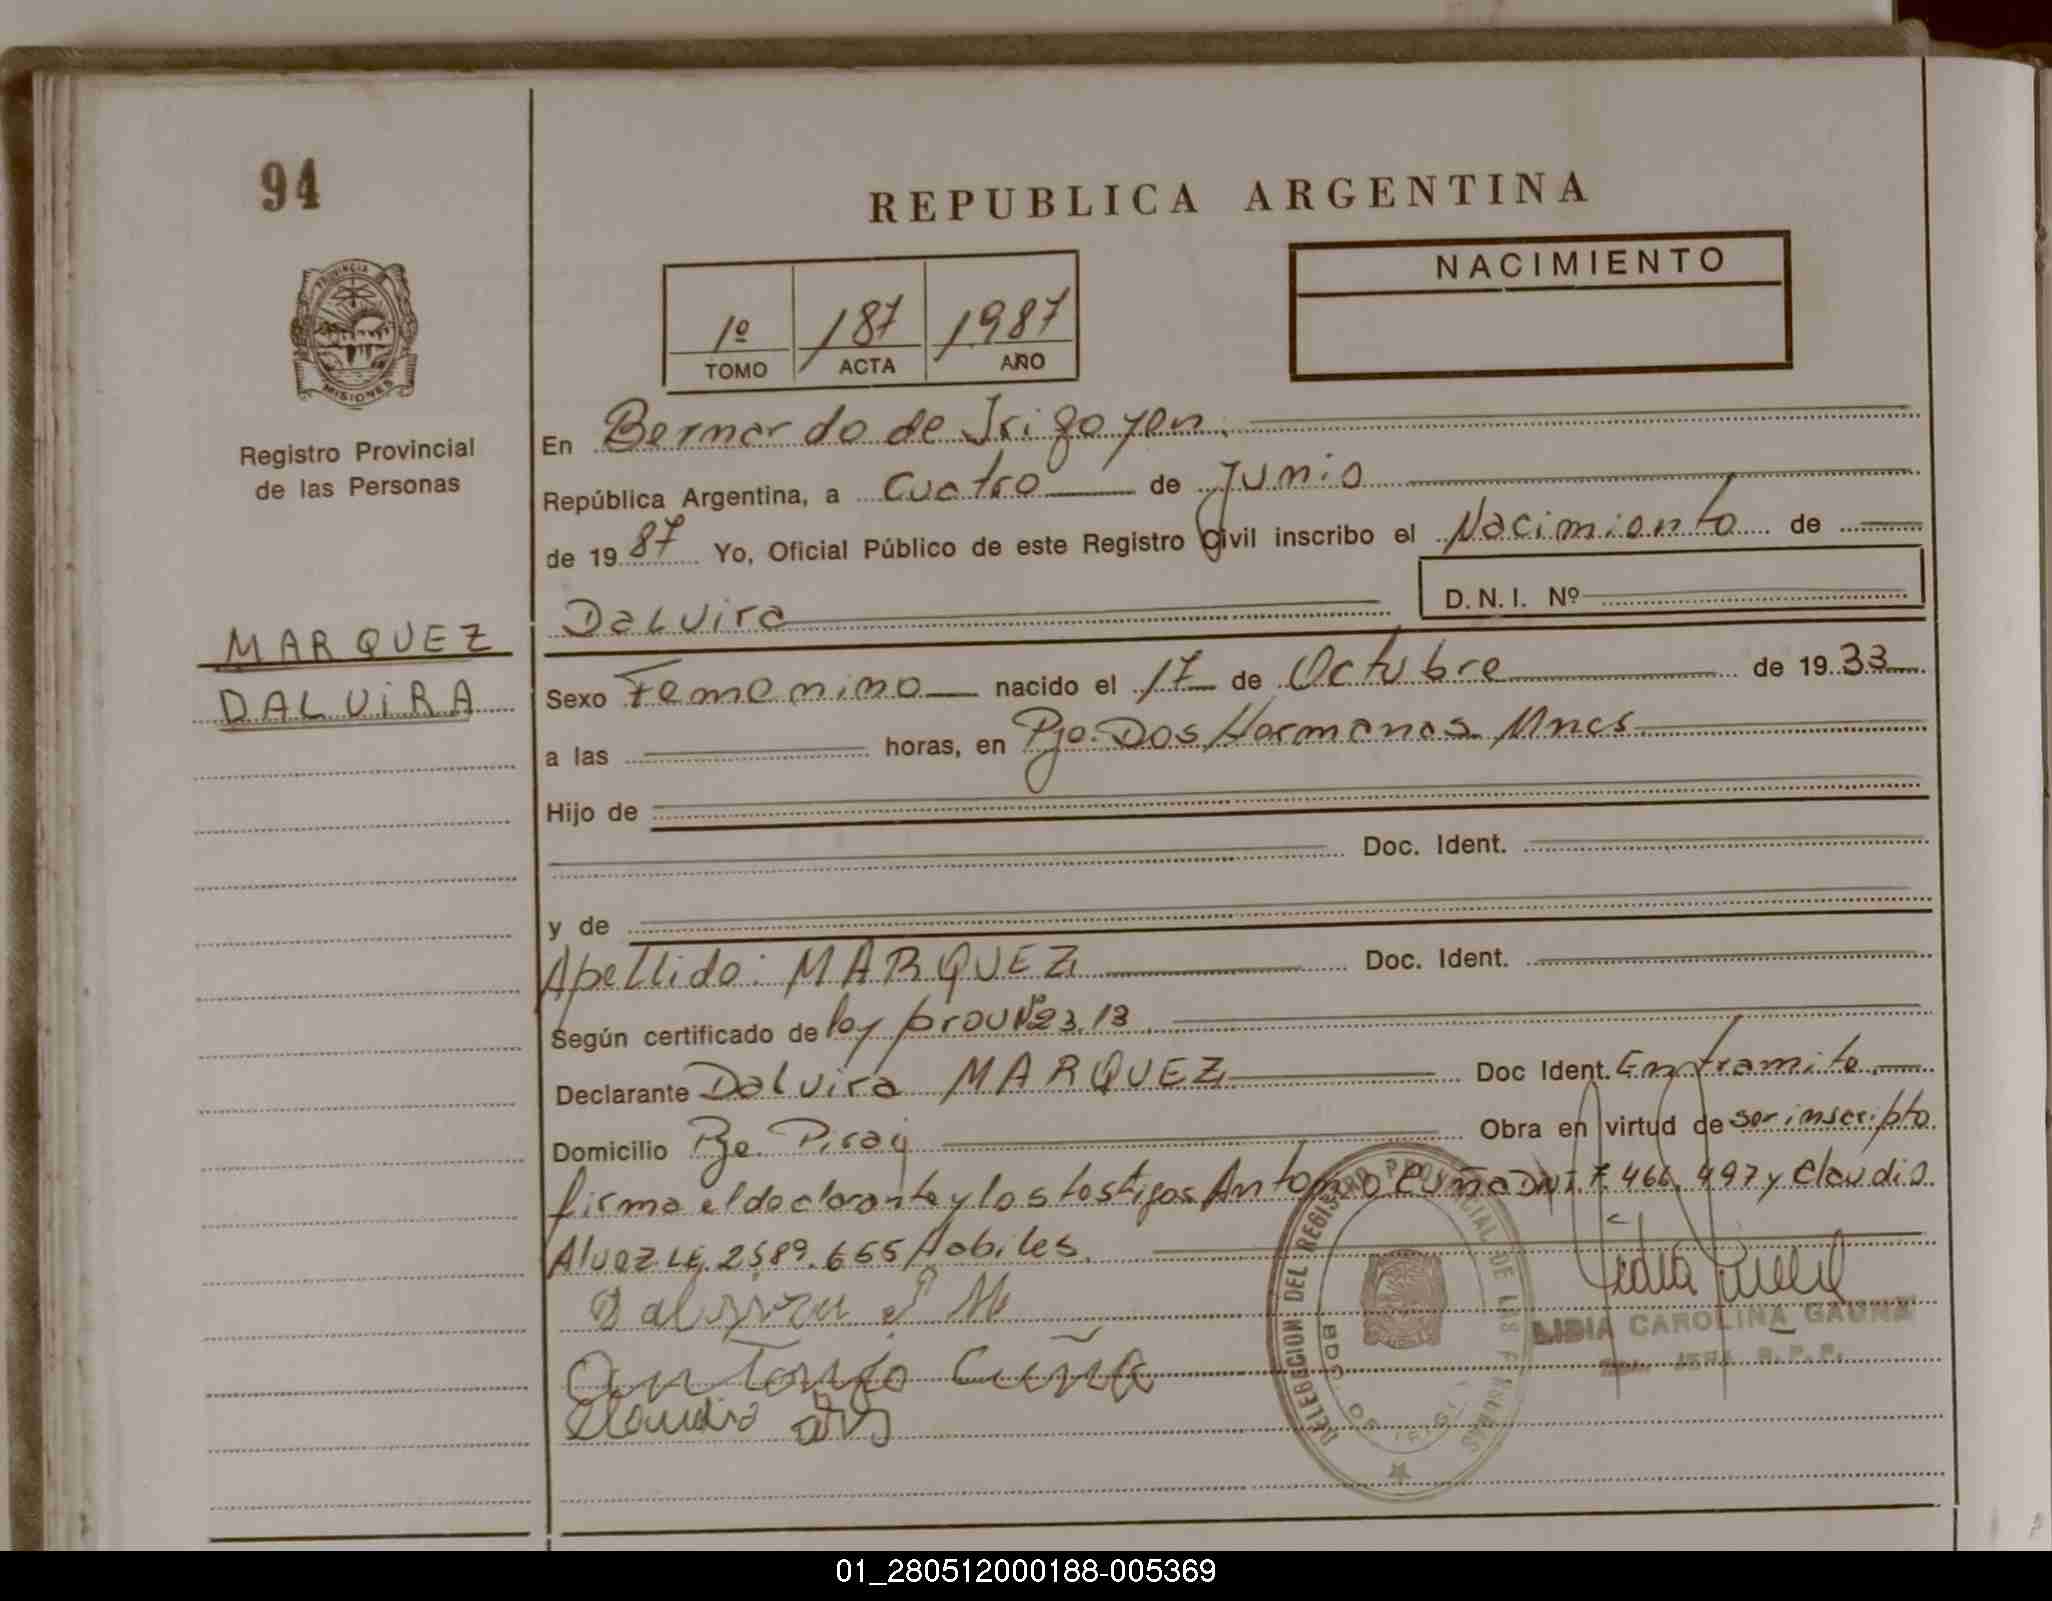 94
REPUBLICA ARGENTINA
PROVINCIA
MISIONES
Registro Provincial
de las Personas
1º 187 1987
TOMO ACTA AÑO
NACIMIENTO
En Bernardo de Irigoyen
República Argentina, a Cuatro de Junio
de 1987 Yo, Oficial Público de este Registro Civil inscribo el Nacimiento de
Daluira
D.N.I. Nº
MARQUEZ
DALUiRA
Sexo Femenino nacido el 17 de Octubre de 1933
a las horas, en Pje. Dos Hermanas Mnes
Hijo de
Doc. Ident.
y de
Apellido: MARQUEZ Doc. Ident.
Según certificado de ley prov Nº 23.13
Declarante Daluira MARQUEZ Doc Ident. En tramite
Domicilio Pje. Piray Obra en virtud de ser inscripto
firma el declarante y los testigos Antonio Cuña DNI. 7.466.497 y Claudio
Alvez LE. 2589.655 Habiles.
Antonio Cuña
Claudio
DELEGACION DEL REGISTRO PROVINCIAL DE LAS PERSONAS
BDO. DE IRIGOYEN
LIDIA CAROLINA GAUNA
JEFA R.P.P.
01_280512000188-005369